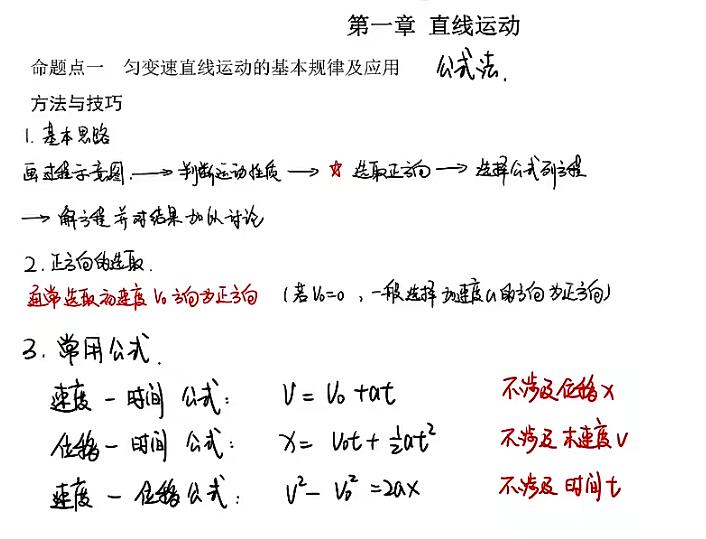 第一章 直线运动
命题点一 匀变速直线运动的基本规律及应用 公式法.
方法与技巧
1. 基本思路
画过程示意图. → 判断运动性质 → ☆ 选取正方向 → 选择公式列方程
→ 解方程并对结果加以讨论
2. 正方向的选取.
通常选取初速度 V₀ 方向为正方向 (若V₀=0, 一般选择加速度a的方向为正方向)
3. 常用公式.
速度-时间 公式: V = V₀ + at 不涉及位移x
位移-时间 公式: x = V₀t + ½at² 不涉及末速度V
速度-位移公式: V² - V₀² = 2ax 不涉及时间t